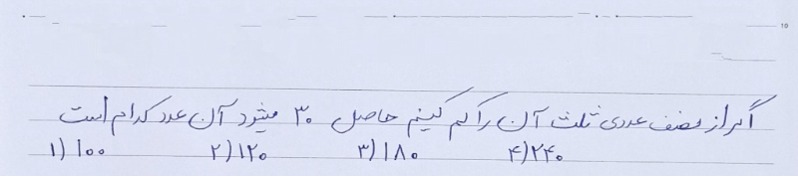 اگر از نصف عددی ثلث آن را کم کنیم حاصل ۳۰ میشود آن عدد کدام است
۱) ۱۰۰ ۲) ۱۲۰ ۳) ۱۸۰ ۴) ۲۴۰